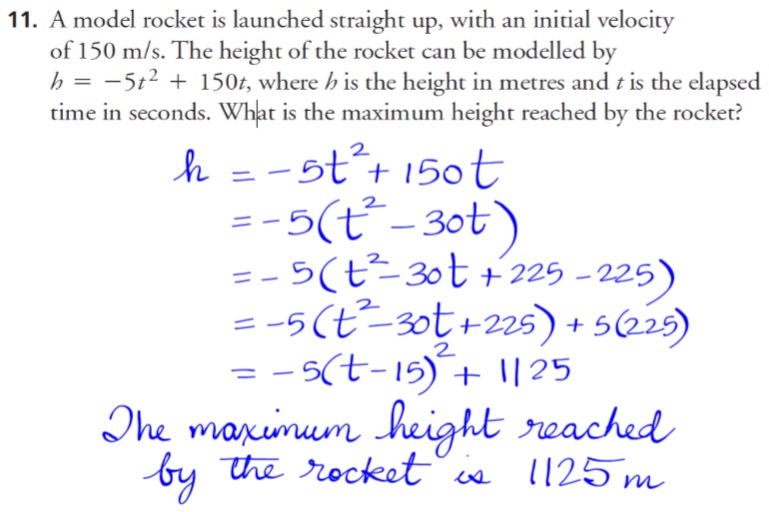 11. A model rocket is launched straight up, with an initial velocity
of 150 m/s. The height of the rocket can be modelled by
h = −5t² + 150t, where h is the height in metres and t is the elapsed
time in seconds. What is the maximum height reached by the rocket?
h = -5t² + 150t
= -5(t² - 30t)
= -5(t² - 30t + 225 - 225)
= -5(t² - 30t + 225) + 5(225)
= -5(t - 15)² + 1125
The maximum height reached
by the rocket is 1125 m